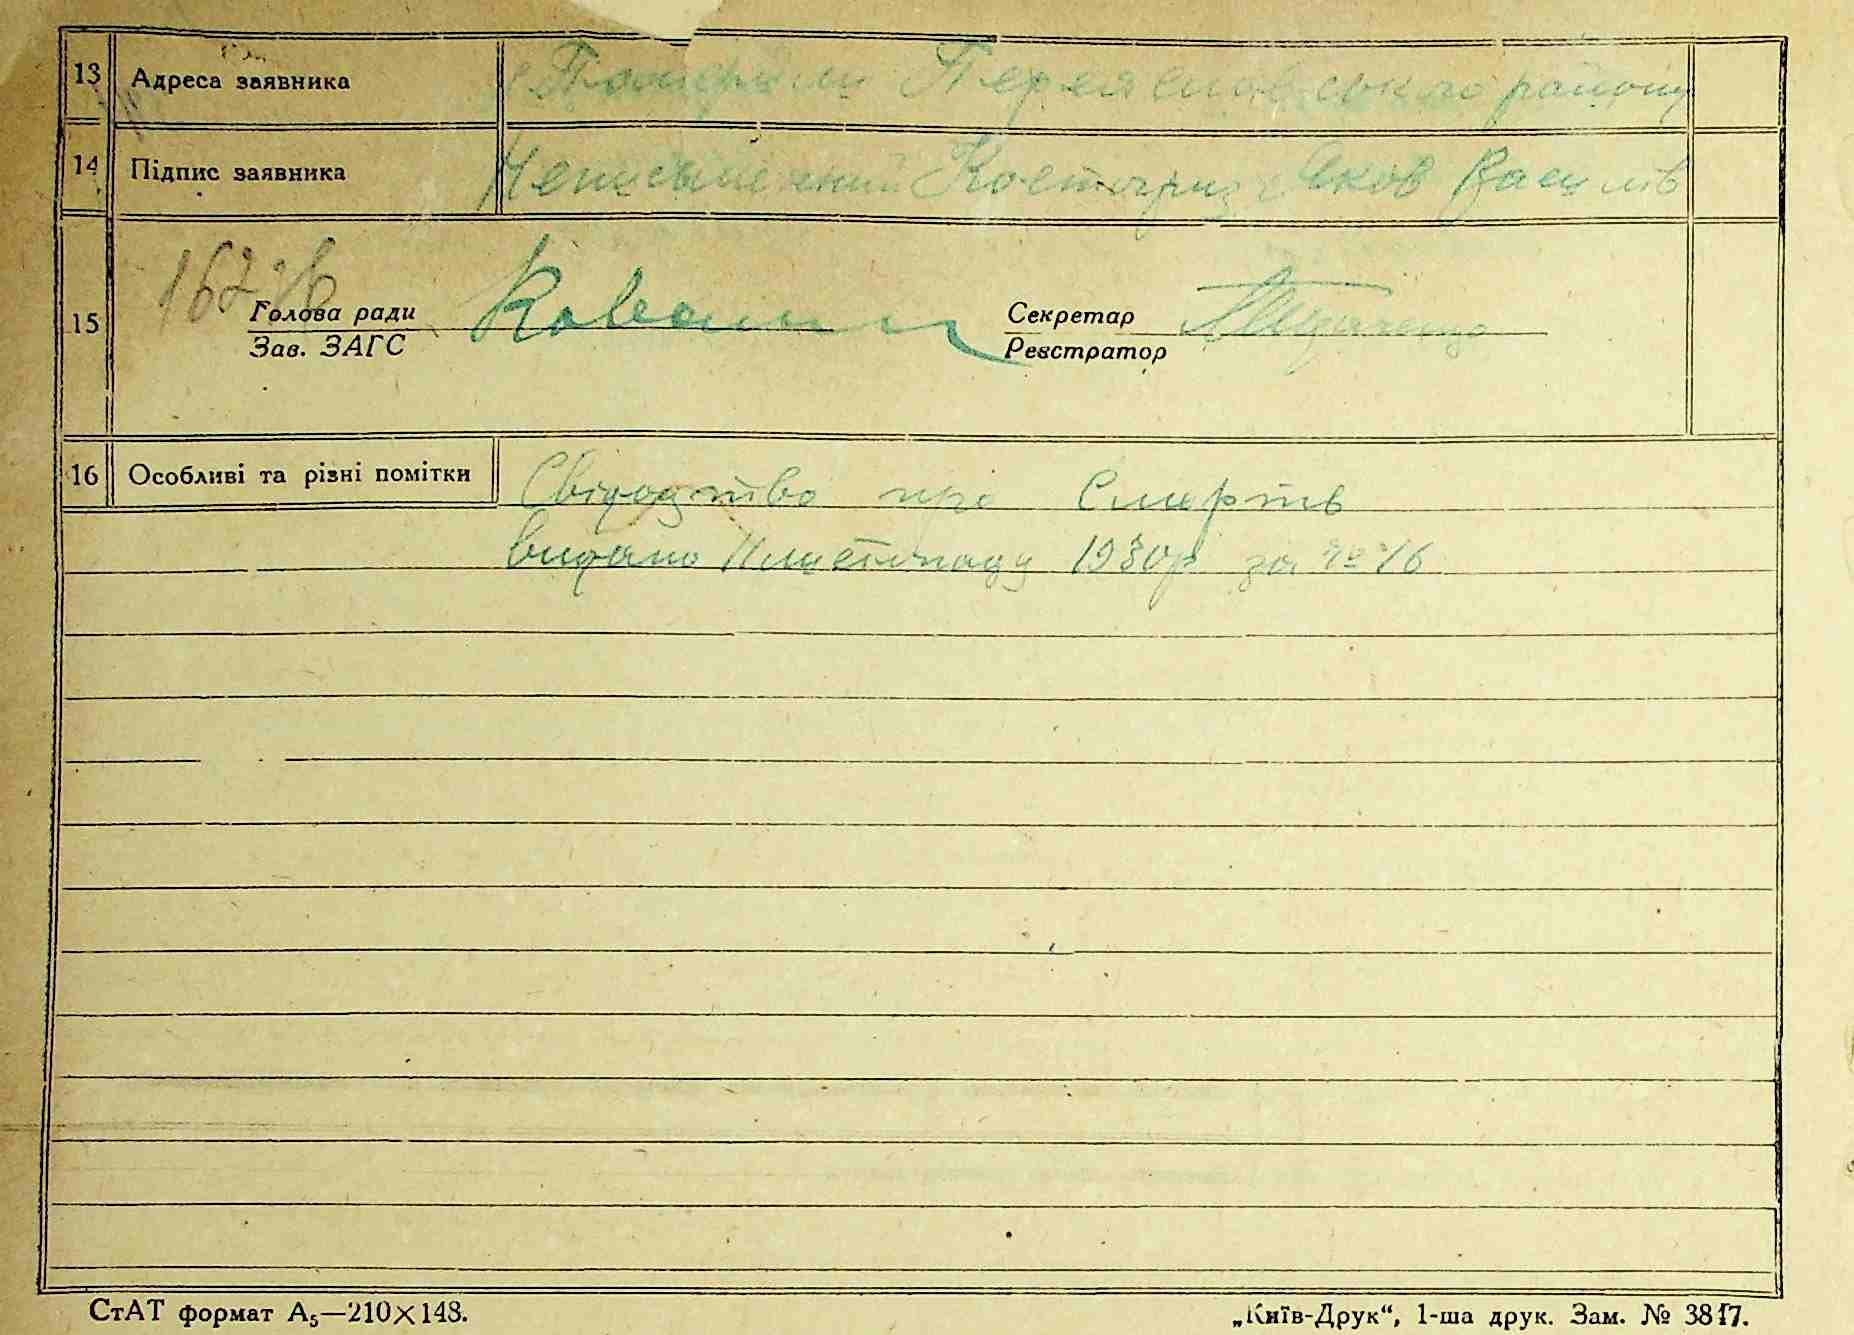 13 Адреса заявника с Помоклі Переяславського району
14 Підпис заявника Неписьменний Костариз Яков Васил
15 Голова ради Секретар
Зав. ЗАГС Реєстратор
16 Особливі та різні помітки Свідоцтво про Смерть
видано Листопаду 1930р за № 16
СтАТ формат А₅—210×148. „Київ-Друк“, 1-ша друк. Зам. № 3817.